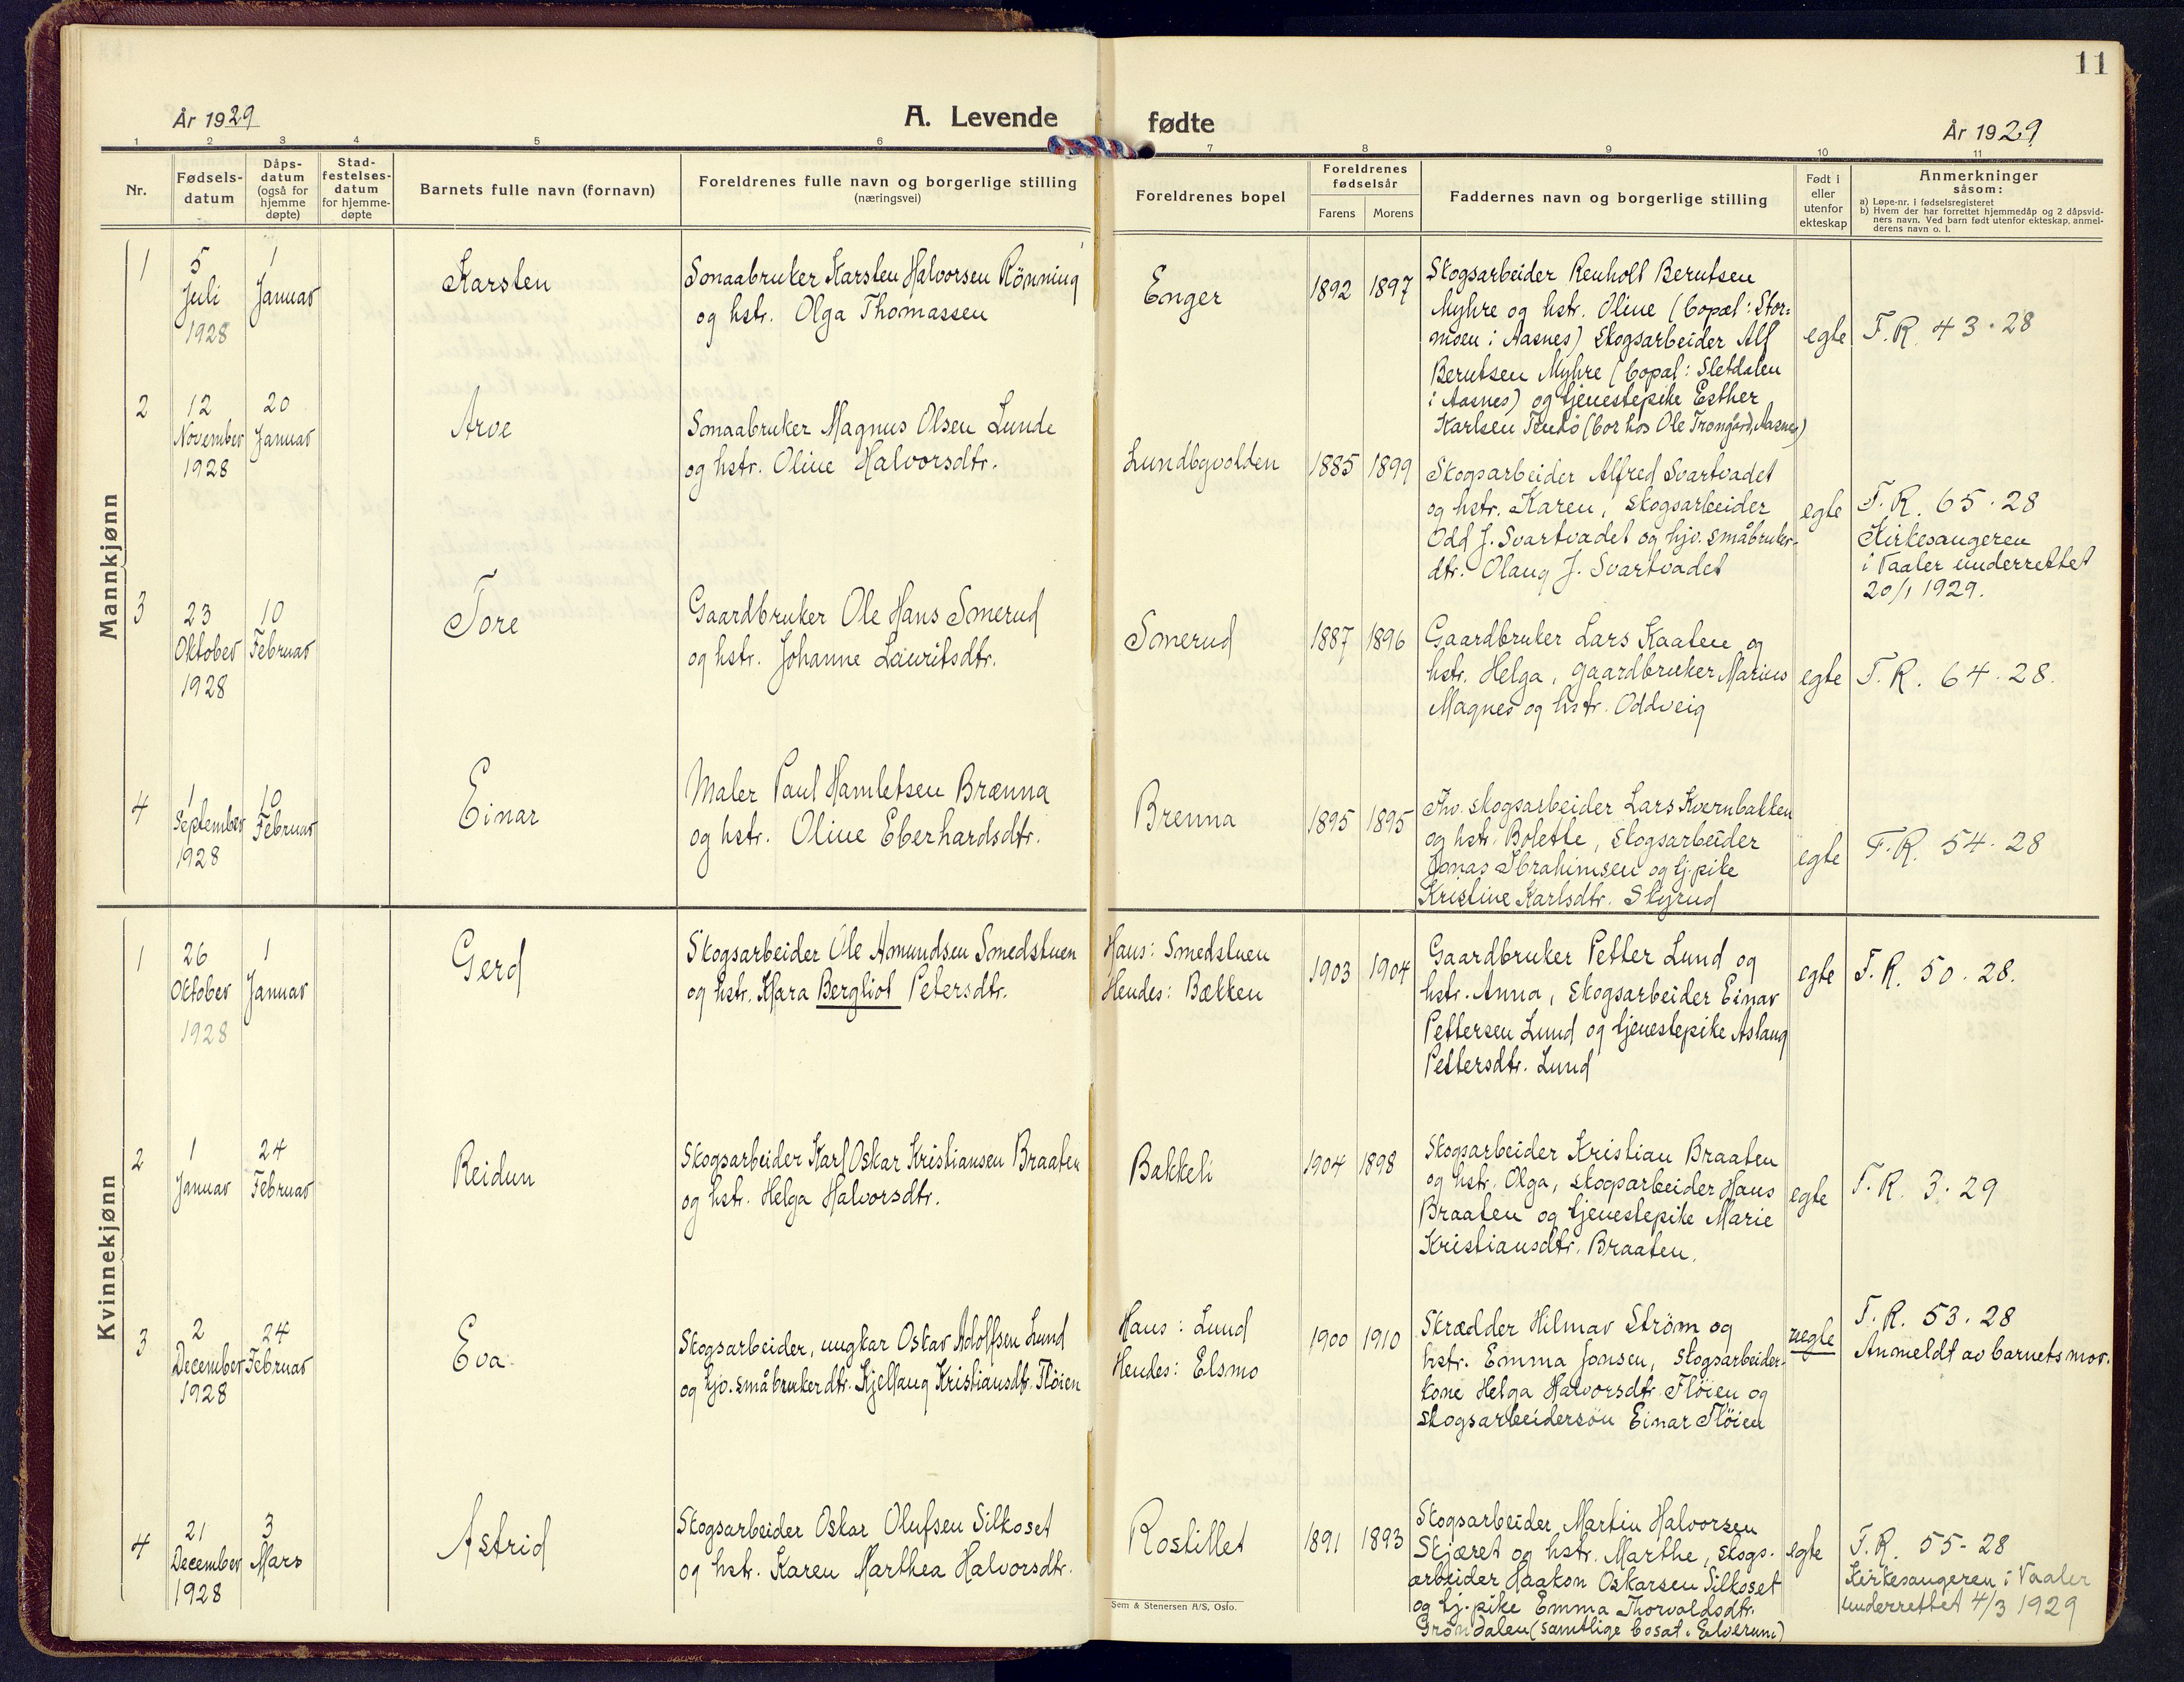 11
År 1929
A. Levende
fødte
År 1929
1 2 3 4 5 6 7 8 9 10 11
Nr.
Fødsels-
datum
Dåps-
datum
(også for
hjemme
døpte)
Stad-
festelses-
datum
for hjemme-
døpte
Barnets fulle navn (fornavn)
Foreldrenes fulle navn og borgerlige stilling
(næringsvei)
Foreldrenes bopel
Foreldrenes
fødselsår
Farens Morens
Faddernes navn og borgerlige stilling
Født i
eller
utenfor
ekteskap
Anmerkninger
såsom:
a) Løpe-nr. i fødselsregisteret
b) Hvem der har forrettet hjemmedåp og 2 dåpsvid-
ners navn. Ved barn født utenfor ekteskap, anmel-
derens navn o. l.
Mannkjønn
1
5
Juli
1928
1
Januar
Karsten
Smaabruker Karsten Halvorsen Rönning
og hstr. Olga Thomassen
Enger
1892 1897
Skogsarbeider Renholt Berntsen
Myhre og hstr. Oline (bopæl: Stor=
moen i Aasnes) Skogsarbeider Alf
Berntsen Myhre (bopæl: Sletdalen
i Aasnes) og tjenestepike Esther
Karlsen (bor hos Ole Tromgård, Aasnes)
egte
F. R. 43 . 28
2
12
November
1928
20
Januar
Arve
Smaabruker Magnus Olsen Lunde
og hstr. Oline Halvorsdtr.
Lundbyvolden
1885 1899
Skogsarbeider Alfred Svartvadet
og hstr. Karen, Skogsarbeider
Odd J. Svartvadet og hjv. småbruker-
dtr. Olaug J. Svartvadet
egte
F. R. 65 . 28
Kirkesangeren
i Vaaler underrettet
20/1 1929.
3
23
Oktober
1928
10
Februar
Tore
Gaardbruker Ole Hans Smerud
og hstr. Johanne Lauritsdtr.
Smerud
1887 1896
Gaardbruker Lars Kaaten og
hstr. Helga, gaardbruker Marius
Magnes og hstr. Oddveig
egte
F. R. 64 . 28.
4
1
September
1928
10
Februar
Einar
Maler Paul Hamletsen Brænna
og hstr. Oline Eberhardsdtr.
Brenna
1895 1895
Fhv. skogsarbeider Lars Kvernbakken
og hstr. Bolette, skogsarbeider
Jonas Ibrahimsen og tj.pike
Kristine Karlsdtr. Skyrud
egte
F. R. 54 . 28
Kvinnekjønn
1
26
Oktober
1928
1
Januar
Gerd
Skogsarbeider Ole Amundsen Smedstuen
og hstr. Klara Bergliot Petersdtr.
Hans: Smedstuen
Hendes: Bækken
1903 1904
Gaardbruker Petter Lund og
hstr. Anna, Skogsarbeider Einar
Pettersen Lund og tjenestepike Aslaug
Pettersdtr. Lund
egte
F. R. 50 . 28.
2
1
Januar
24
Februar
Reidun
Skogsarbeider Karl Oskar Kristiansen Braaten
og hstr. Helga Halvorsdtr.
Bakkeli
1904 1898
Skogsarbeider Kristian Braaten
og hstr. Olga, skogsarbeider Hans
Braaten og tjenestepike Marie
Kristiansdtr. Braaten.
egte
F. R. 3 . 29
3
2
December
1928
24
Februar
Eva
Skogsarbeider, ungkar Oskar Adolfsen Lund
og hjv. småbrukerdtr. Kjellaug Kristiansdtr. Flöien
Hans: Lund
Hendes: Elsmo
1900 1910
Skrædder Hilmar Ström og
hstr. Emma Jonsen, skogsarbeider-
kone Helga Halvorsdtr. Flöien og
skogsarbeidersön Einar Flöien
uegte
F. R. 53 . 28
Anmeldt av barnets mor.
4
21
December
1928
3
Mars
Astrid
Skogsarbeider Oskar Olufsen Silkoset
og hstr. Karen Marthea Halvorsdtr.
Rostillet
1891 1893
Skogsarbeider Martin Halvorsen
Skjæret og hstr. Marthe, skogs-
arbeider Haakon Oskarsen Silkoset
og tj. pike Emma Thorvaldsdtr.
Gröndalen (samtlige bosat i Elverum)
egte
F. R. 55 - 28
Kirkesangeren i Vaaler
underrettet 4/3 1929
Sem & Stenersen A/S, Oslo.